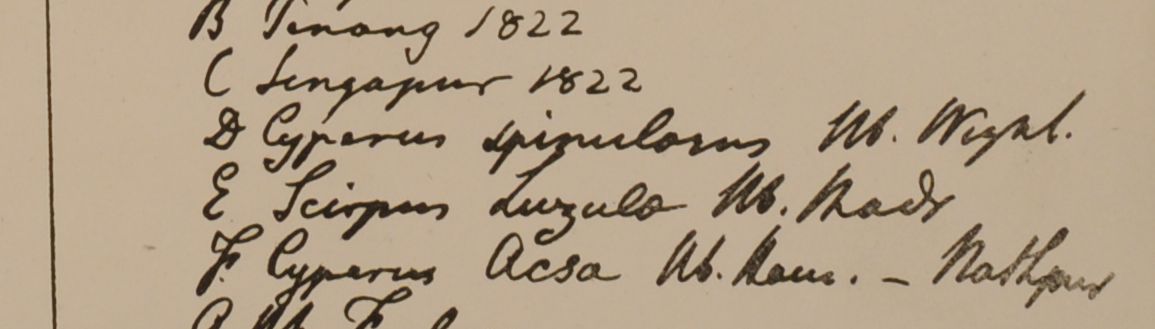 B Pinang 1822
C Singapur 1822
D Cyperus spinulosus Hb. Wight.
E Scirpus Luzula Hb. Madr
F. Cyperus Acsa Hb. Ham. - Nathpur
G Hb.